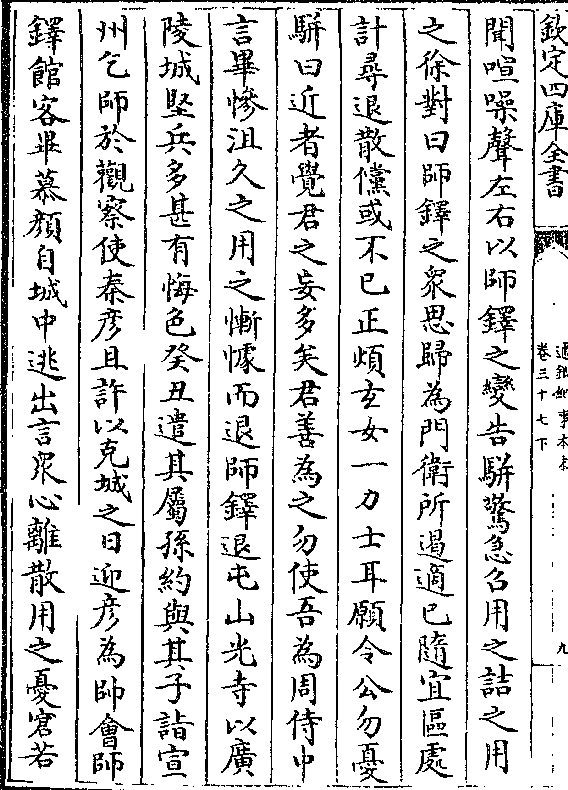 欽定四庫全書
通鑑紀事本末
卷三十七下
九
聞喧噪聲左右以師鐸之變告駢驚急召用之詰之用
之徐對曰師鐸之衆思歸為門衛所遏適已隨宜區處
計尋退散儻或不已正煩玄女一力士耳願令公勿憂
駢曰近者覺君之妄多矣君善為之勿使吾為周侍中
言畢慘沮久之用之慚懅而退師鐸退屯山光寺以廣
陵城堅兵多甚有悔色癸丑遣其屬孫約與其子詣宣
州乞師於觀察使秦彦且許以克城之日迎彦為帥會師
鐸館客畢慕顔自城中逃出言衆心離散用之憂窘若